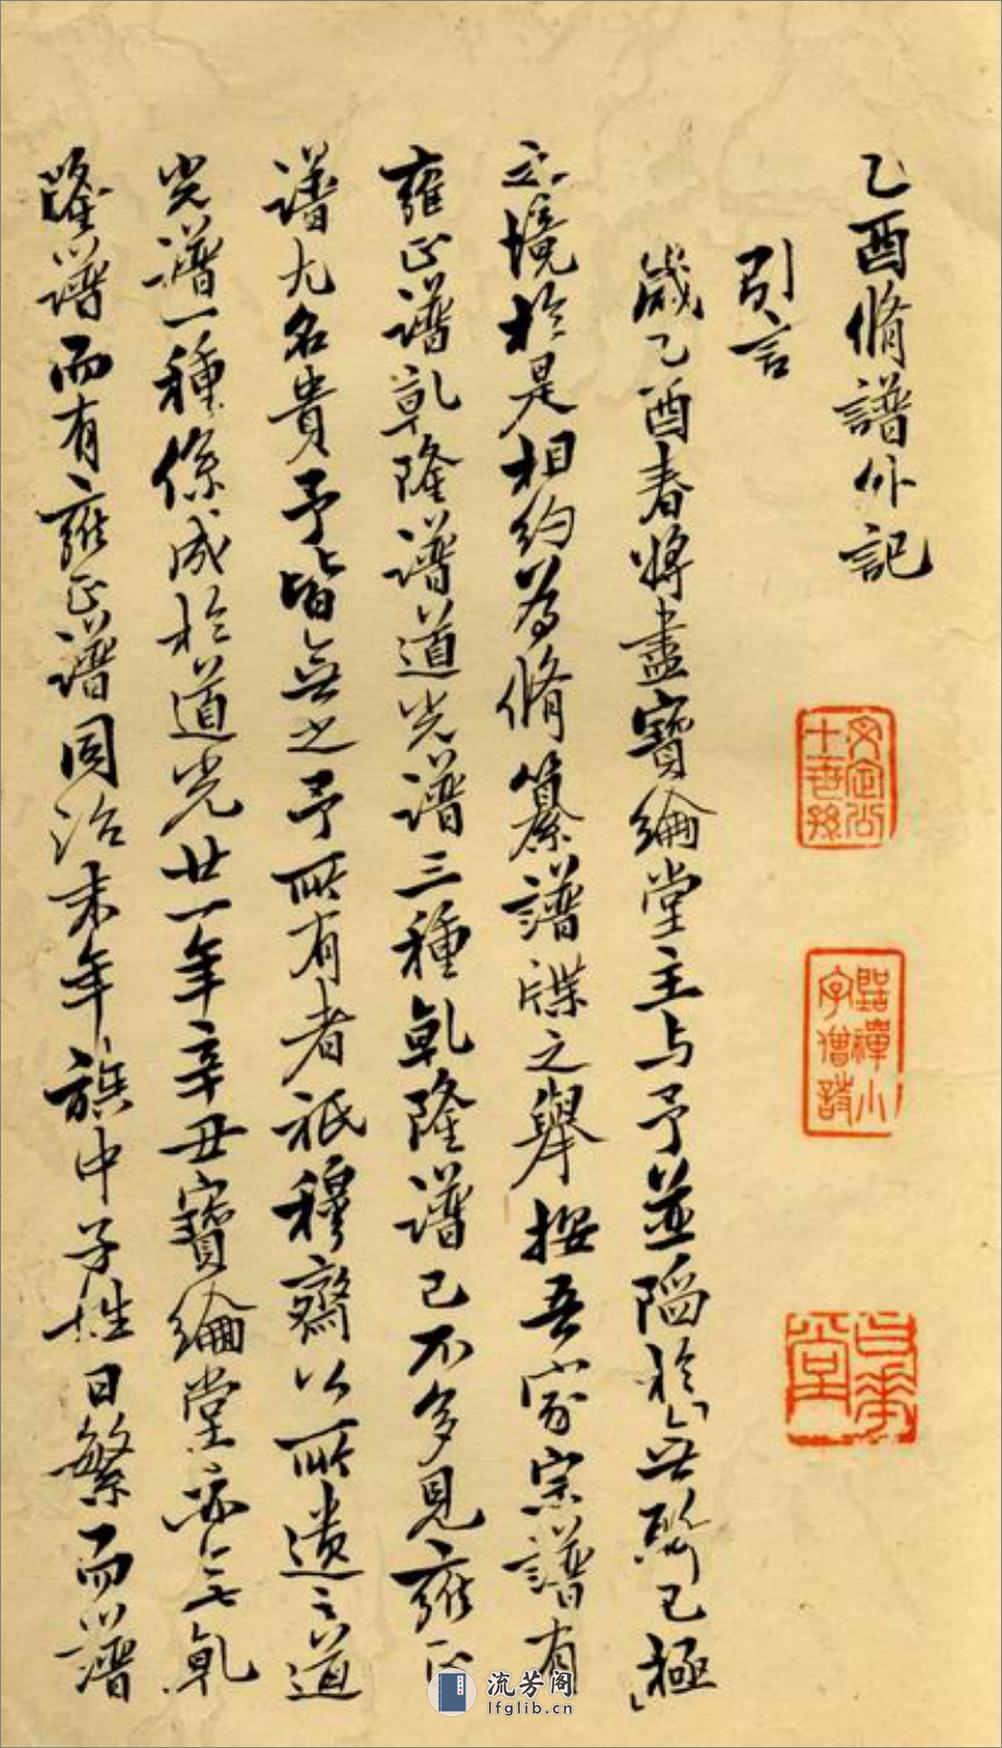 乙酉脩譜外記
引言
歲乙酉春將盡寶綸堂主与予並陷於無聊已極
之境於是相約為脩纂譜牒之舉按吾家宗譜有
雍正譜乾隆譜道光譜三種乾隆譜已不多見雍正
譜尤名貴予皆無之予所有者祇穆齋公所遺之道
光譜一種係成於道光廿一年辛丑寶綸堂亦無乾
隆譜而有雍正譜同治末年族中子姓日繁而譜
文定公
十世孫
點禪小
字僧詩
流芳阁
lfglib.cn